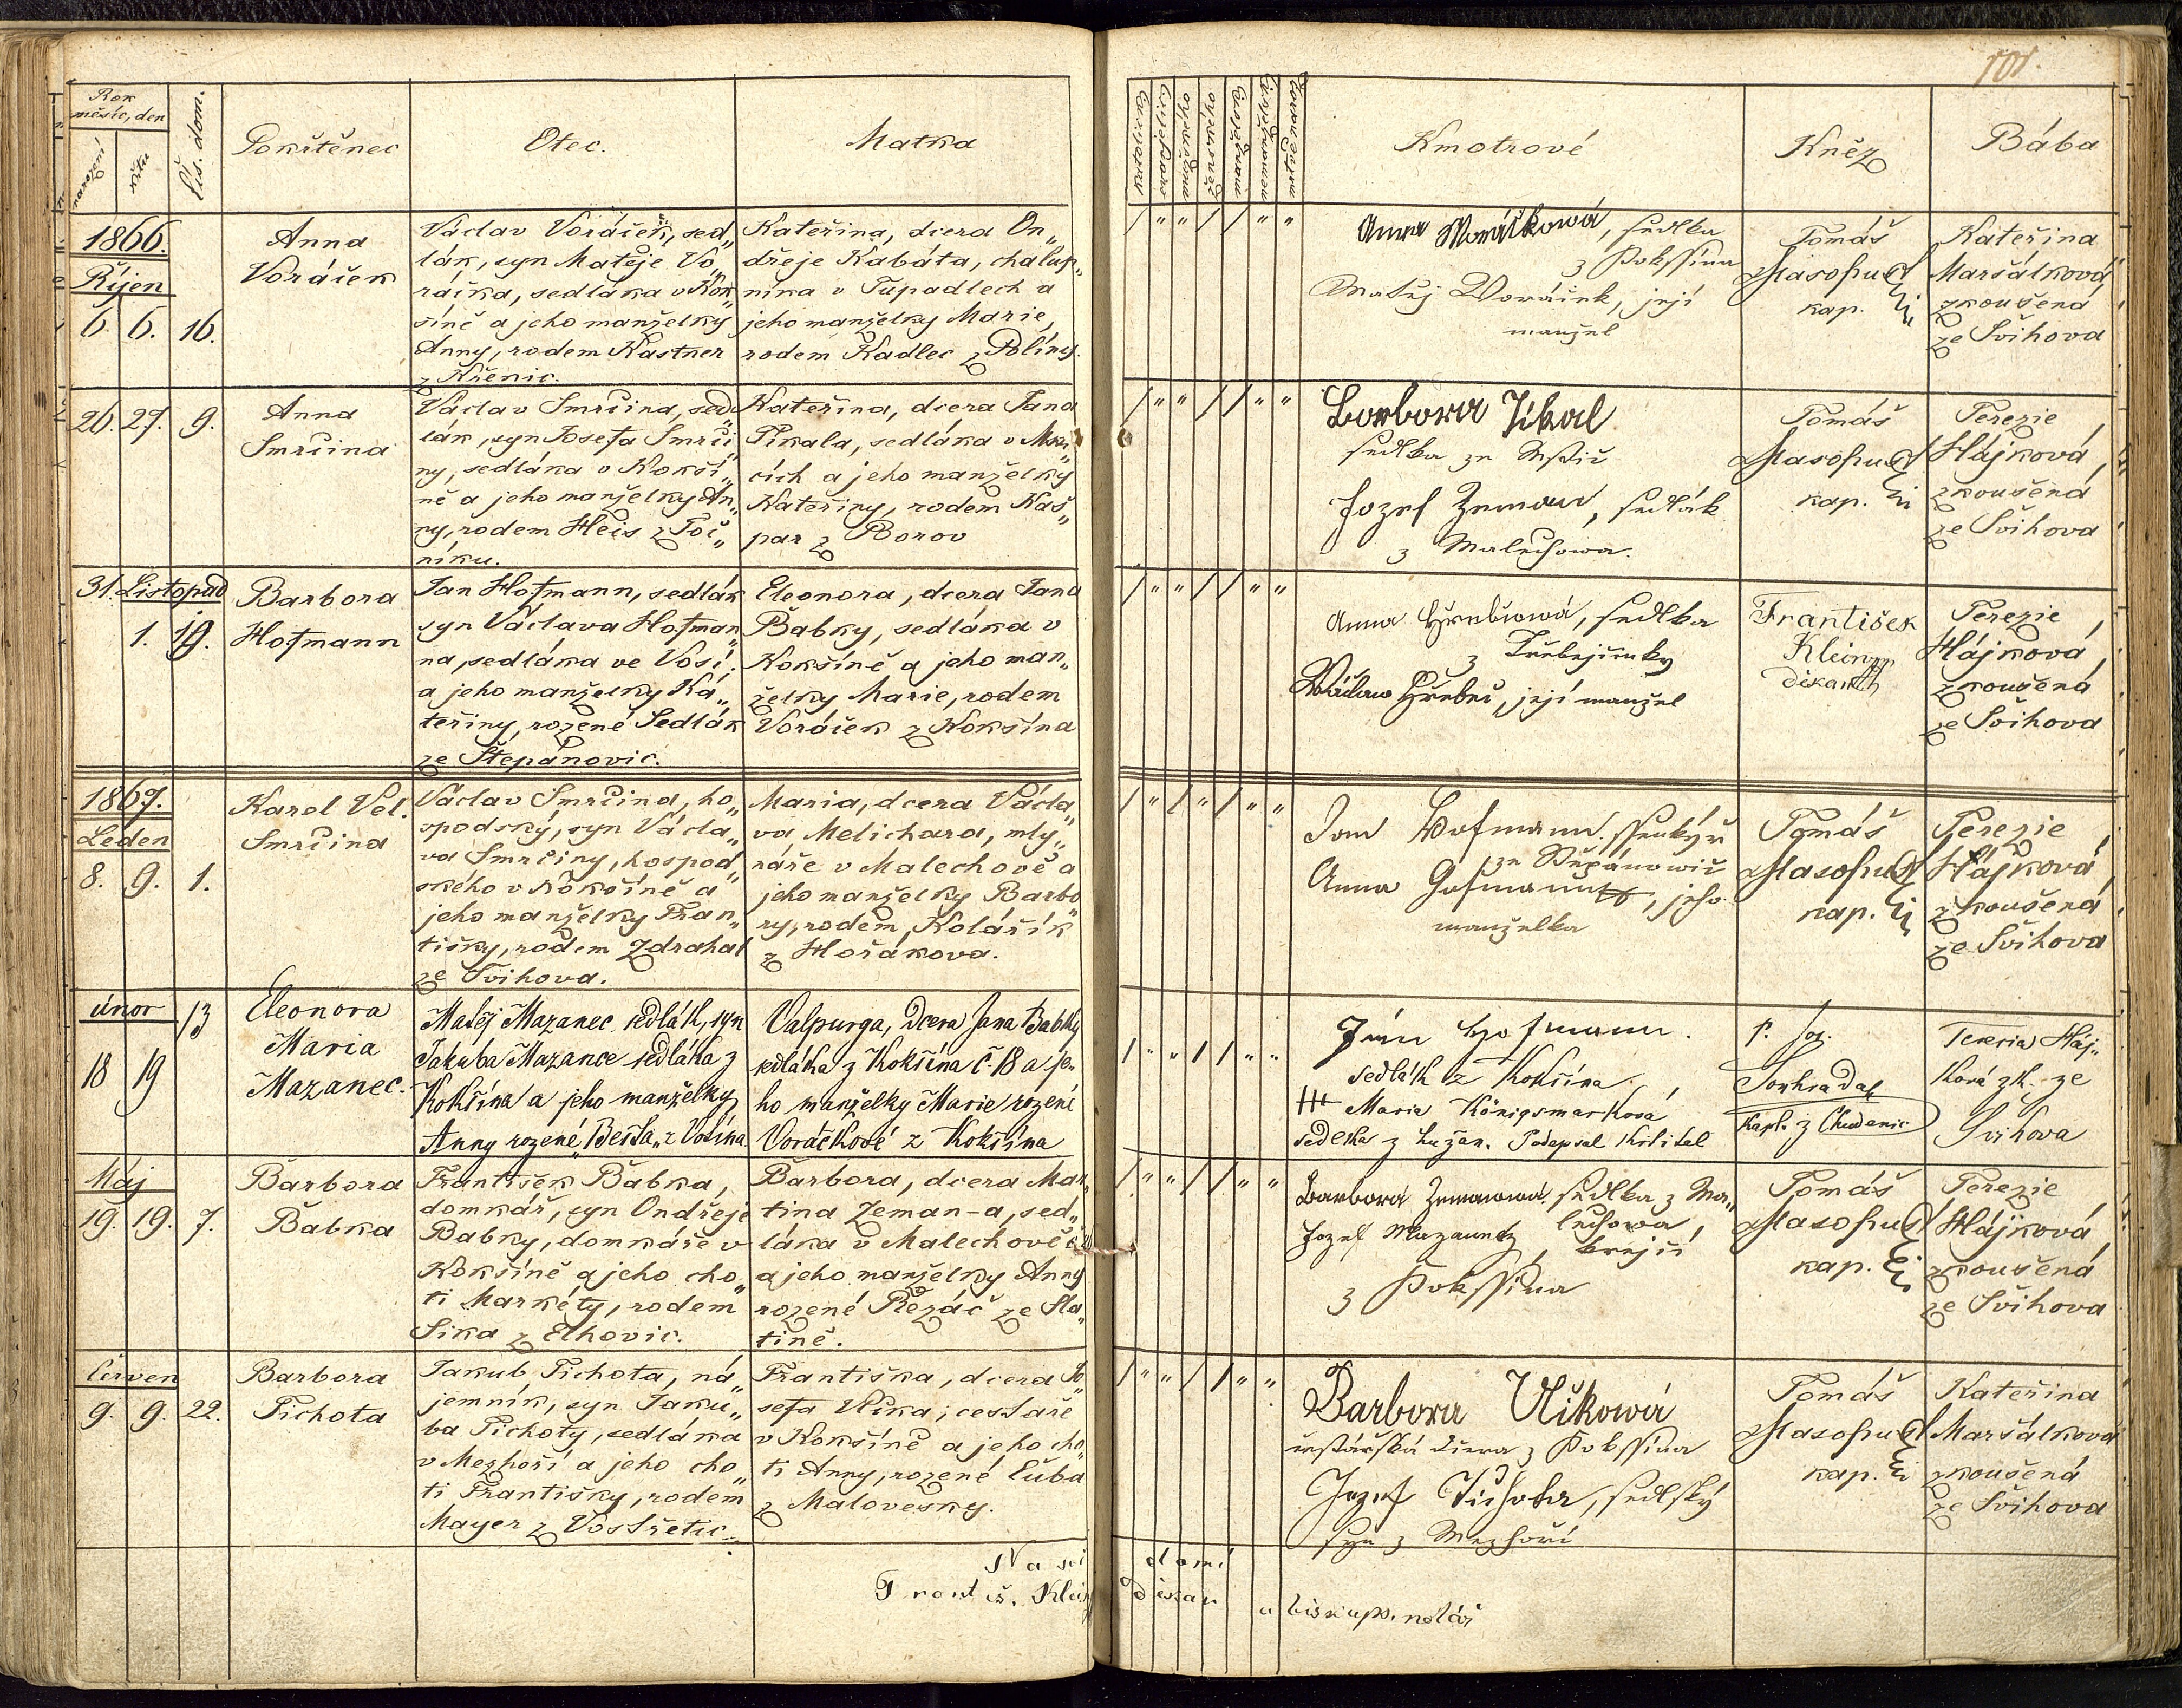 101.
Rok
měsíc, den
narození
křtu
Čís. dom.
Pokřtěnec
Otec.
Matka
Kmotrové
Kněz
Bába
1866.
Říjen
6. 6. 16.
Anna
Voráček
Václav Voráček, sed„
lák, syn Matěje Vo„
ráčka, sedláka v Kok„
šíně a jeho manželky
Anny, rodem Kastner
z Křenic.
Kateřina, dcera On„
dřeje Kabáta, chalup„
níka v Tupadlech a
jeho manželky Marie,
rodem Kadlec z Poliny.
Anna Woráčková, sedlka
z Kokssína
Matěj Woráček, její
manžel
Tomáš
Masopust
kap.
Kateřina
Maršálková,
zkoušená
ze Švihova
26. 27. 9.
Anna
Smrčina
Václav Smrčina, sed„
lák, syn Josefa Smrči„
ny, sedláka v Kokší„
ně a jeho manželky An„
ny, rodem Heis z Toč„
níku.
Kateřina, dcera Jana
Jikala, sedláka v
cích a jeho manželky
Kateřiny, rodem Kaš„
par z Borov
Barbora Jikal
sedlka ze Mstic
Jozef Zeman, sedlák
z Malechowa.
Tomáš
Masopust
kap.
Terezie
Hájková,
zkoušená
ze Švihova
31. Listopad
1. 19.
Barbora
Hofmann
Jan Hofmann, sedlák
syn Václava Hofman„
na, sedláka ve Vosí.
a jeho manželky Ka„
teřiny, rozené Sedlák
ze Štěpánovic.
Eleonora, dcera Jana
Babky, sedláka v
Kokšíně a jeho man„
želky Marie, rodem
Voráček z Kokšína
Anna Hřebcowá, sedlka
z Třebejčinky
Wáclaw Hřebec, její manžel
František
Klein
děkan
Terezie
Hájková,
zkoušená
ze Švihova
1867.
Leden
8. 9. 1.
Karel Vel.
Smrčina
Václav Smrčina, ho„
spodský, syn Václa„
va Smrčiny, hospod„
ského v Kokšíně a
jeho manželky Fran„
tišky, rodem Zdrahal
ze Švihova.
Maria, dcera Václa„
va Melichara, mly„
náře v Malechově a
jeho manželky Barbo„
ry, rodem Kolářík
z Hořákova.
Jan Hofmann, ssenkýř
ze Štěpánowic
Anna Hofmann, jeho
manželka
Tomáš
Masopust
kap.
Terezie
Hájková,
zkoušená
ze Švihova
únor
18 19 13
Eleonora
Maria
Mazanec.
Matěj Mazanec sedlák, syn
Jakuba Mazance sedláka z
Kokšína a jeho manželky
Anny rozené „Bešta„ z Vošína
Valpurga, Dcera Jana Babky
sedláka z Kokšína č. 18 a je„
ho manželky Marie rozené
Voráčkové z Kokšína
Ján Hofmann.
sedlák z Kokšína,
+++ Maria Königsmarková
sedlka z Lužan. Podepsal
P. Jos.
Soukradal
Kapl. z Chudenic
Terezia Háj„
ková zk. ze
Švihova
Máj
19. 19. 7.
Barbora
Babka
František Babka,
domkář, syn Ondřeje
Babky, domkáře v
Kokšíně a jeho cho„
ti Markéty, rodem
Sika z Elhovic.
Barbora, dcera Mar„
tina Zeman-a, sed„
láka v Malechově
a jeho manželky Anny
rozené Řezáč ze Sla„
tině.
Barbora Zemanowá, sedlka z Ma„
lechowa,
Jozef Mazanec, krejčí
z Kokssína
Tomáš
Masopust
kap.
Terezie
Hájková,
zkoušená
ze Švihova
Červen
9. 9. 22.
Barbora
Tichota
Jakub Tichota, ná„
jemník, syn Jaku„
ba Tichoty, sedláka
v Mezhoří a jeho cho„
ti Františky, rodem
Mayer z Vostřetic.
Františka, dcera Jo„
sefa Vlka, cestáře
v Kokšíně a jeho cho„
ti Anny, rozené Čuba
z Malovesky.
Barbora Vlčkowá
cestářská dcera z Kokssína
Jozef Tichota, sedlský
syn z Mezhoří
Tomáš
Masopust
kap.
Kateřina
Maršálková
zkoušená
ze Švihova
Na svědomí
Františ. Klein děkan
a biskups. notář